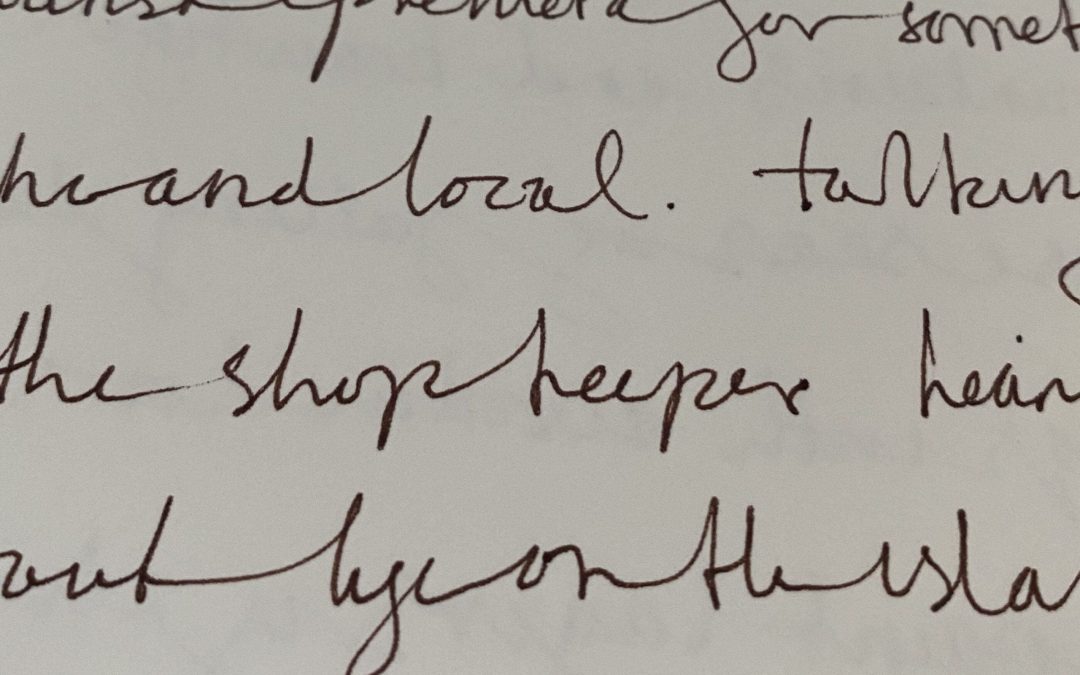 for somet
and local. talkin
the shop keeper hearin
out life on the isla